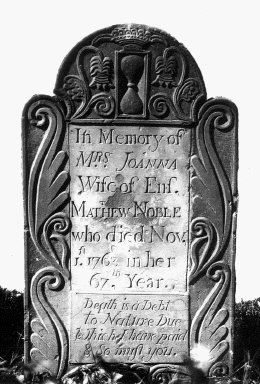 In Memory of
Mrs. JOANNA
Wife of Ens.
MATTHEW NOBLE
who died Nov.
1. 1763 in her
67. Year.
Death is a Debt
to Nature Due
which I have paid
& so must you.